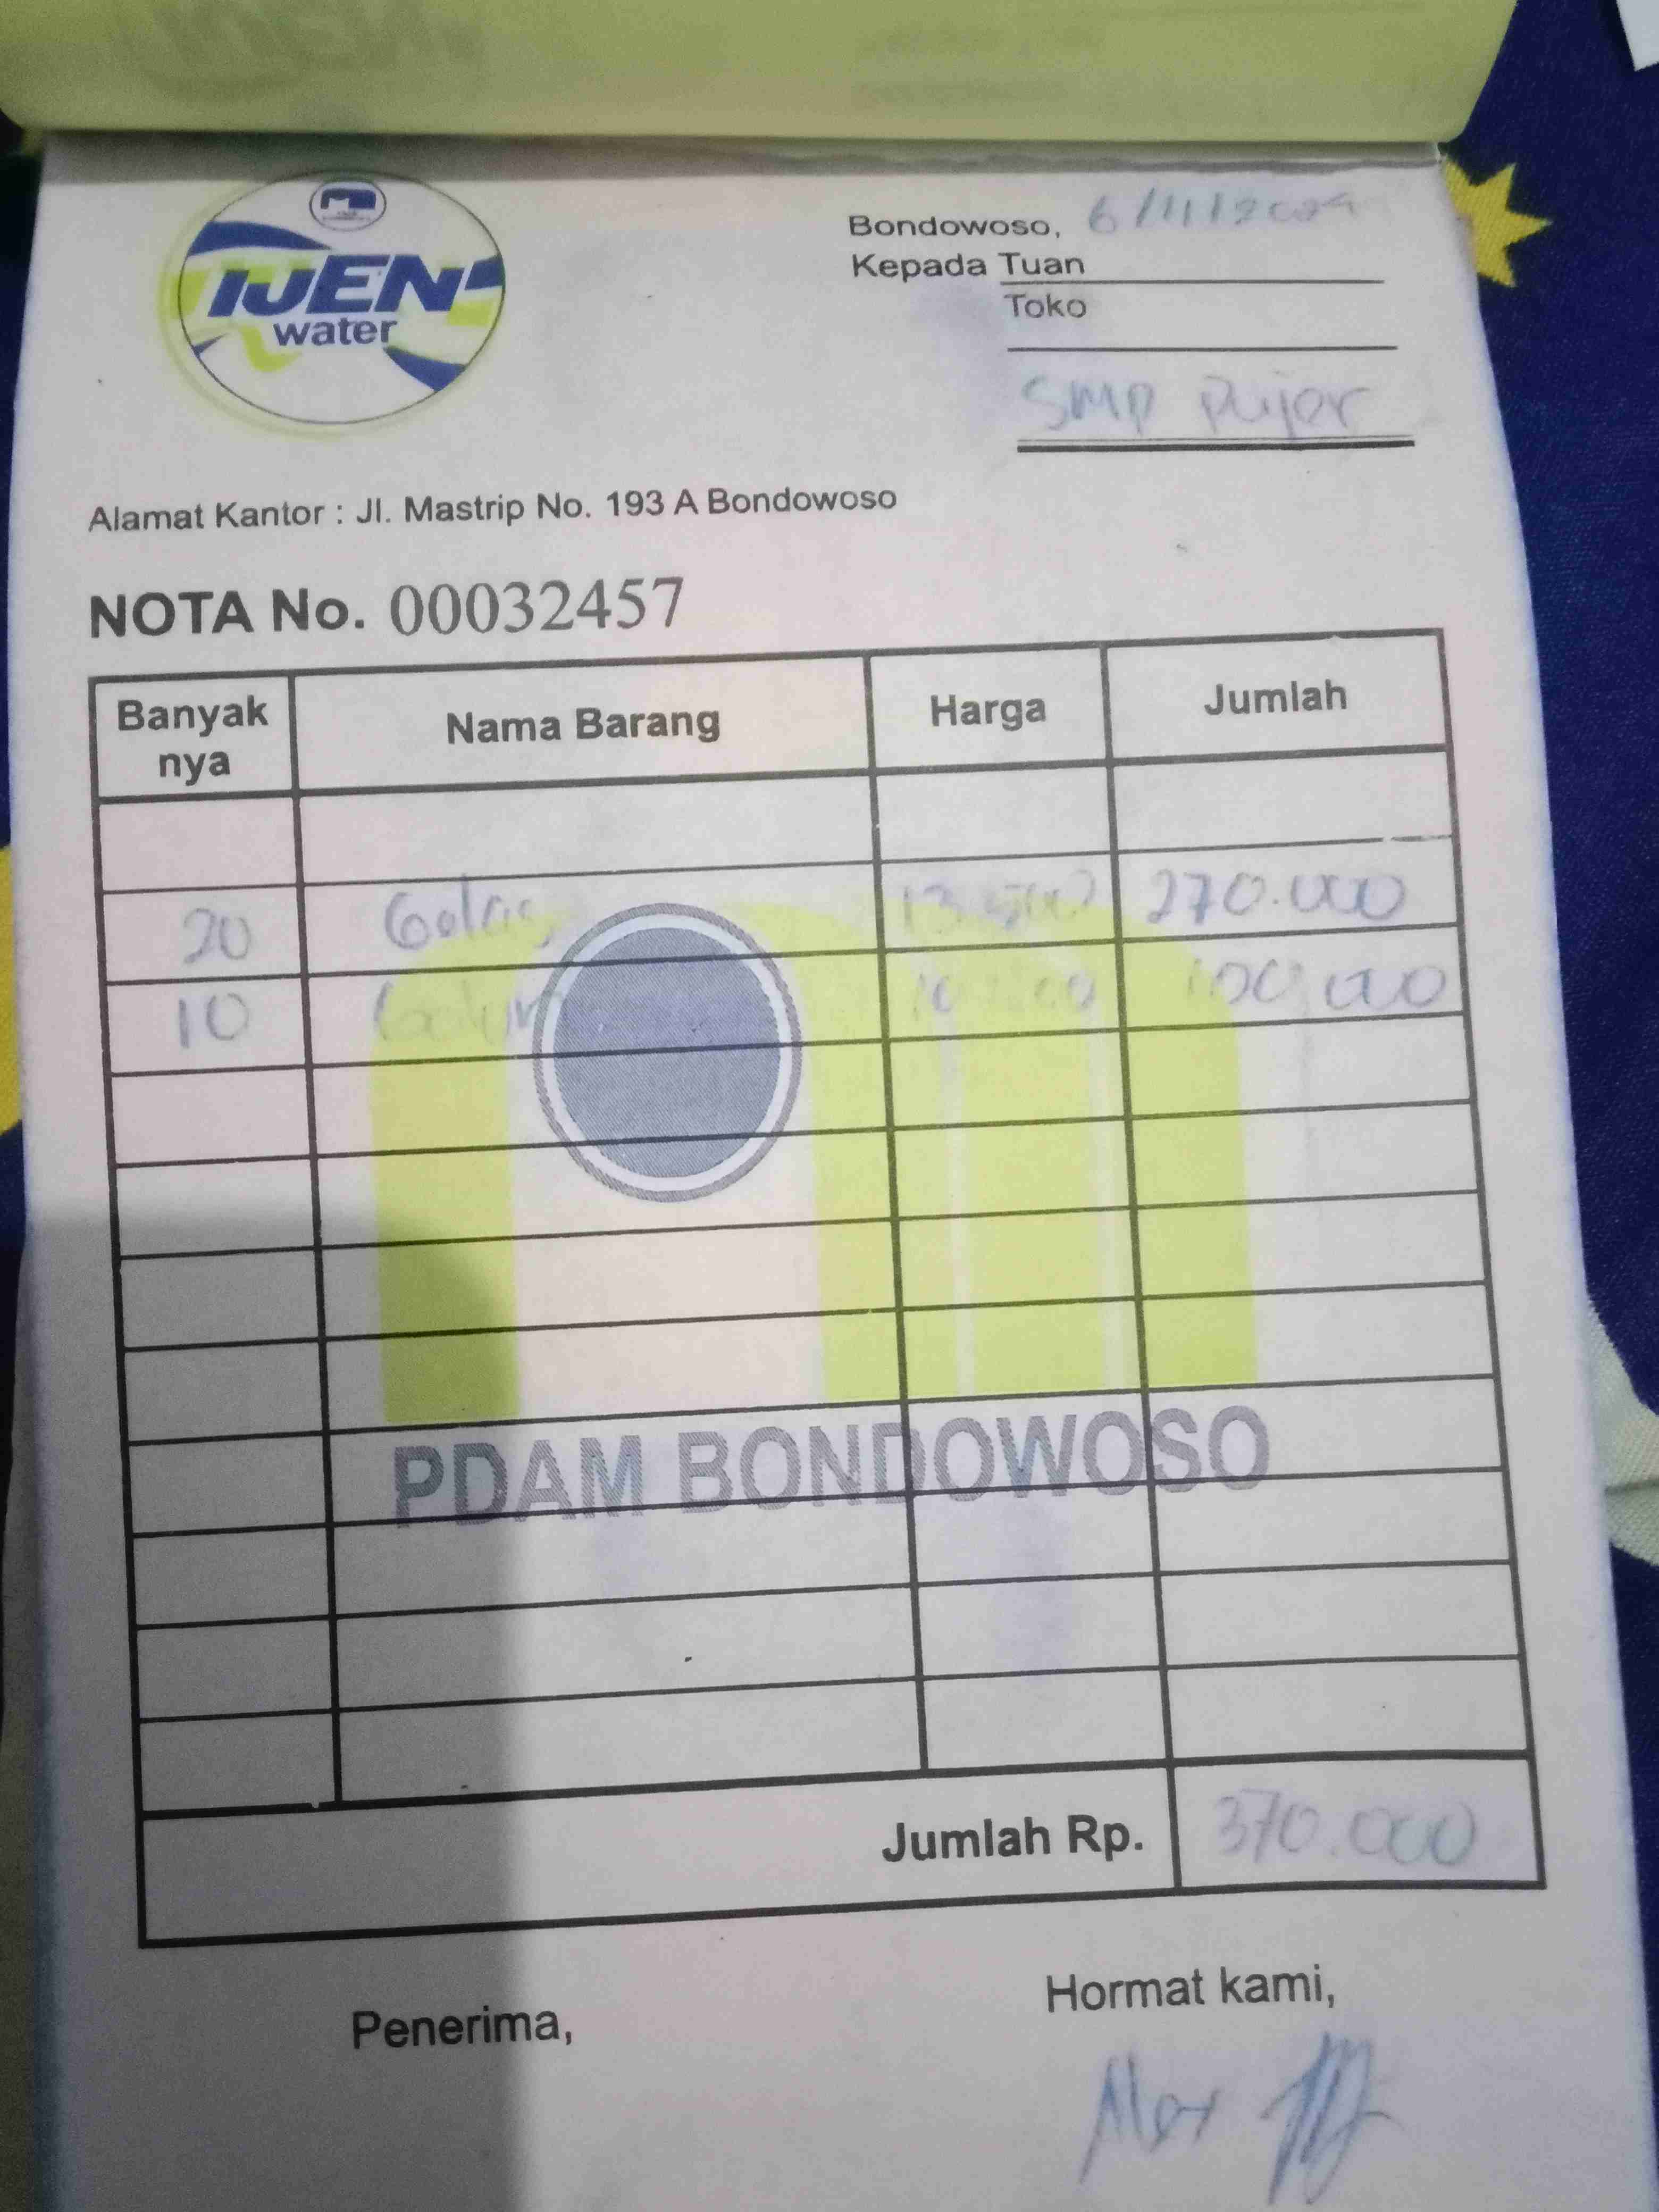 IJEN
water
Bondowoso, 6/11/2024
Kepada Tuan
Toko
SMP Pujer
Alamat Kantor : Jl. Mastrip No. 193 A Bondowoso
NOTA No. 00032457
Banyak nya Nama Barang Harga Jumlah
20 Gelas 13.500 270.000
10 Galon 10.000 100.000
PDAM BONDOWOSO
Jumlah Rp. 370.000
Penerima, Hormat kami,